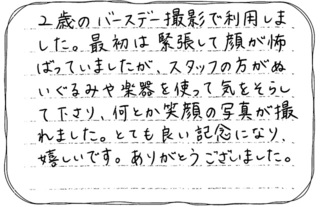 2歳のバースデー撮影で利用しま
した。最初は緊張して顔が怖
ばっていましたが、スタッフの方がぬ
いぐるみや楽器を使って気をそらし
て下さり、何とか笑顔の写真が撮
れました。とても良い記念になり、
嬉しいです。ありがとうございました。